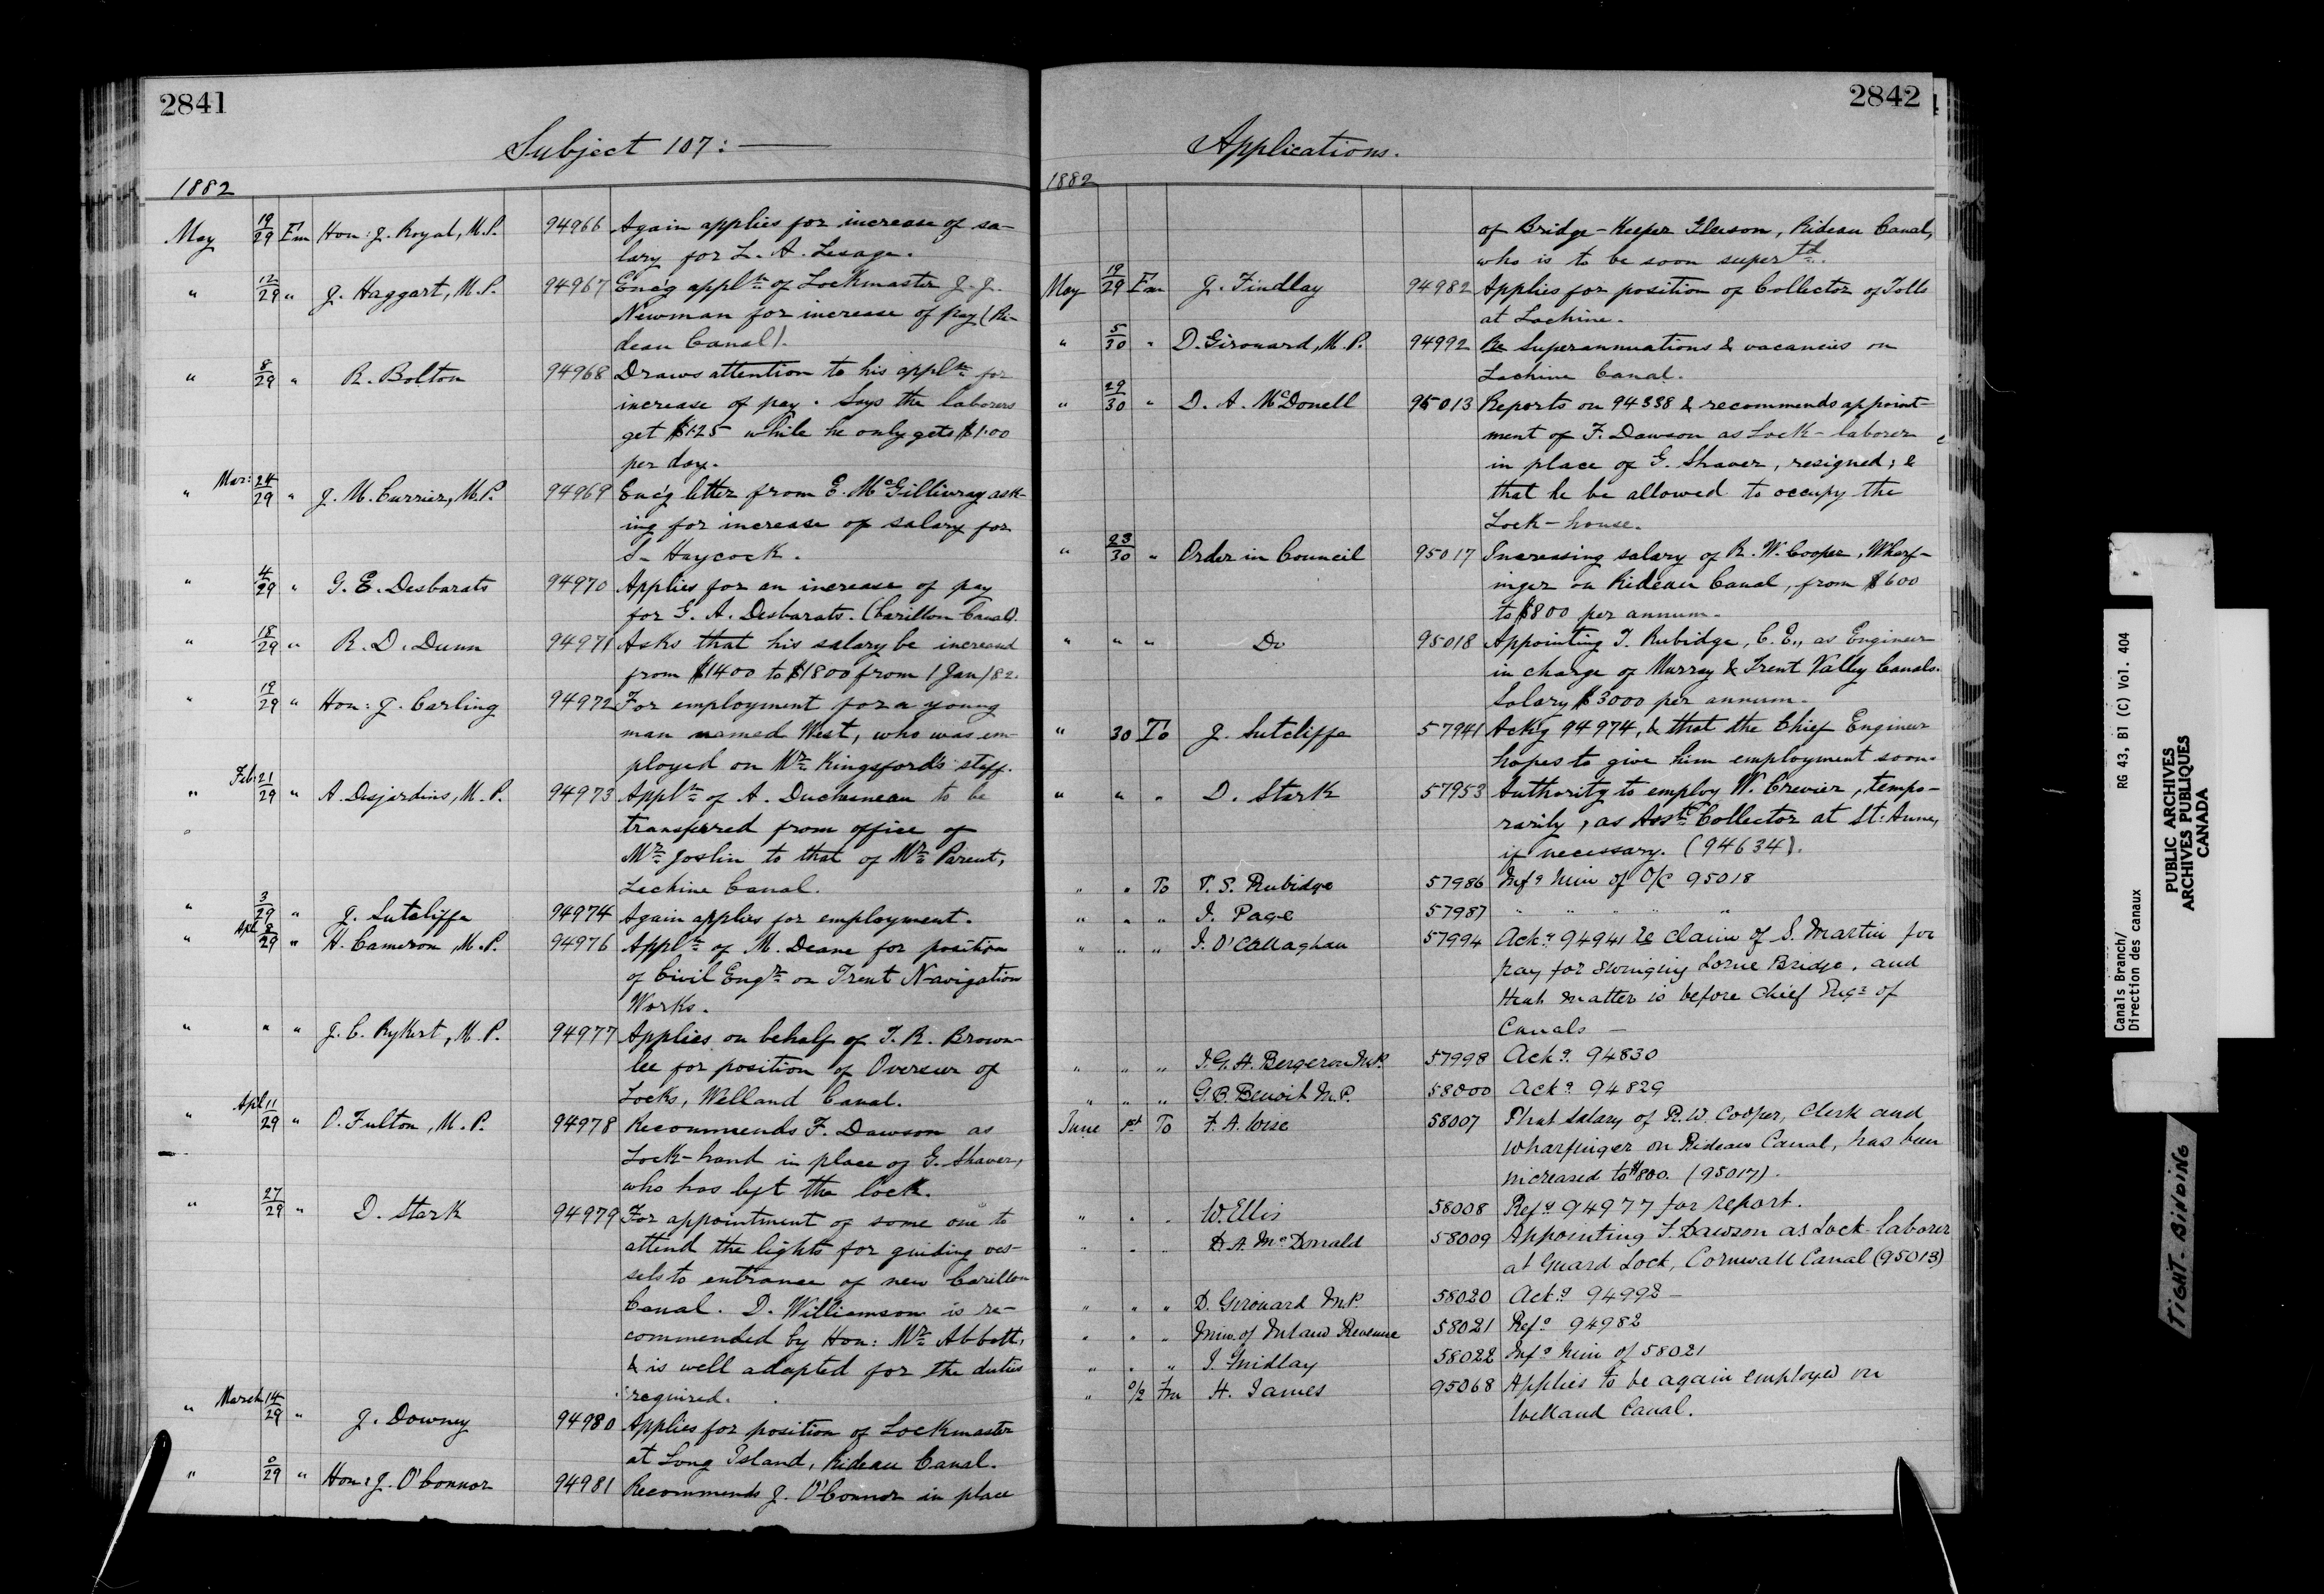 2841
Subject 107: —
1882
May 19/29 Fm Hon: J. Royal, M.P. 94966 Again applies for increase of sa-
lary for L. A. Lesage.
" 12/29 " J. Haggart, M.P. 94967 Enc'g appln of Lockmaster J. J.
Newman for increase of pay (Ri-
deau Canal).
" 8/29 " R. Bolton 94968 Draws attention to his appln for
increase of pay. Says the laborers
get $1.25 while he only gets $1.00
per day.
" Mar: 24/29 " J. M. Currier, M.P. 94969 Enc'g letter from E. McGillivray ask-
ing for increase of salary for
S. Haycock.
" 4/29 " G. E. Desbarats 94970 Applies for an increase of pay
for G. A. Desbarats. (Carillon Canal).
" 18/29 " R. D. Dunn 94971 Asks that his salary be increased
from $1400 to $1800 from 1 Jan/82.
" 19/29 " Hon: J. Carling 94972 For employment for a young
man named West, who was em-
ployed on Mr Kingsford's staff.
" Feb: 21/29 " A. Desjardins, M.P. 94973 Appln of A. Duchesneau to be
transferred from office of
Mr Joslin to that of Mr Parent,
Lachine Canal.
" 3/29 " J. Sutcliffe 94974 Again applies for employment.
" Apl 8/29 " H. Cameron, M.P. 94976 Appln of M. Deane for position
of Civil Engr on Trent Navigation
Works.
" " " J. C. Rykert, M.P. 94977 Applies on behalf of T. R. Brown-
lee for position of Overseer of
Locks, Welland Canal.
" Apl 11/29 " O. Fulton, M.P. 94978 Recommends F. Dawson as
Lock-hand in place of G. Shaver,
who has left the lock.
" 27/29 " D. Stark 94979 For appointment of some one to
attend the lights for guiding ves-
sels to entrance of new Carillon
Canal. D. Williamson is re-
commended by Hon: Mr Abbott,
& is well adapted for the duties
required.
" March 14/29 " J. Downey 94980 Applies for position of Lockmaster
at Long Island, Rideau Canal.
" 0/29 " Hon: J. O'Connor 94981 Recommends J. O'Connor in place
2842
Applications.
1882
of Bridge-Keeper Gleeson, Rideau Canal,
who is to be soon supertd.
May 19/29 Fm J. Findlay 94982 Applies for position of Collector of Tolls
at Lachine.
" 5/30 " D. Girouard, M.P. 94992 Re Superannuations & vacancies on
Lachine Canal.
" 29/30 " D. A. McDonell 95013 Reports on 94338 & recommends appoint-
ment of F. Dawson as Lock-laborer
in place of G. Shaver, resigned; &
that he be allowed to occupy the
Lock-house.
" 23/30 " Order in Council 95017 Increasing salary of R. W. Cooper, Wharf-
inger on Rideau Canal, from $600
to $800 per annum.
" " " Do 95018 Appointing T. Rubidge, C.E., as Engineer
in charge of Murray & Trent Valley Canals.
Salary $3000 per annum.
" 30 To J. Sutcliffe 57941 Ack'g 94974, & that the Chief Engineer
hopes to give him employment soon.
" " " D. Stark 57953 Authority to employ W. Crevier, tempo-
rarily, as Asst Collector at St. Anne,
if necessary. (94634).
" " To T. S. Rubidge 57986 Infg him of O/C 95018
" " " J. Page 57987 " " " " "
" " " J. O'Callaghan 57994 Ackg 94941 re claim of S. Martin for
pay for swinging Lorne Bridge, and
that matter is before Chief Engr of
Canals —
" " " J. G. H. Bergeron M.P. 57998 Ackg 94830
" " " G. B. Benoit M.P. 58000 Ackg 94829
June 1st To F. A. Wise 58007 That salary of R. W. Cooper, Clerk and
Wharfinger on Rideau Canal, has been
increased to $800. (95017).
" " " W. Ellis 58008 Refg 94977 for report.
" " " D. A. McDonald 58009 Appointing F. Dawson as Lock-laborer
at Guard Lock, Cornwall Canal (95013)
" " " D. Girouard M.P. 58020 Ackg 94992 —
" " " Min. of Inland Revenue 58021 Refg 94982
" " " J. Findlay 58022 Infg him of 58021
" 0/2 Fm H. James 95068 Applies to be again employed on
Welland Canal.
Canals Branch/ RG 43, B1 (C) Vol. 404
Direction des canaux
PUBLIC ARCHIVES
ARCHIVES PUBLIQUES
CANADA
TIGHT BINDING